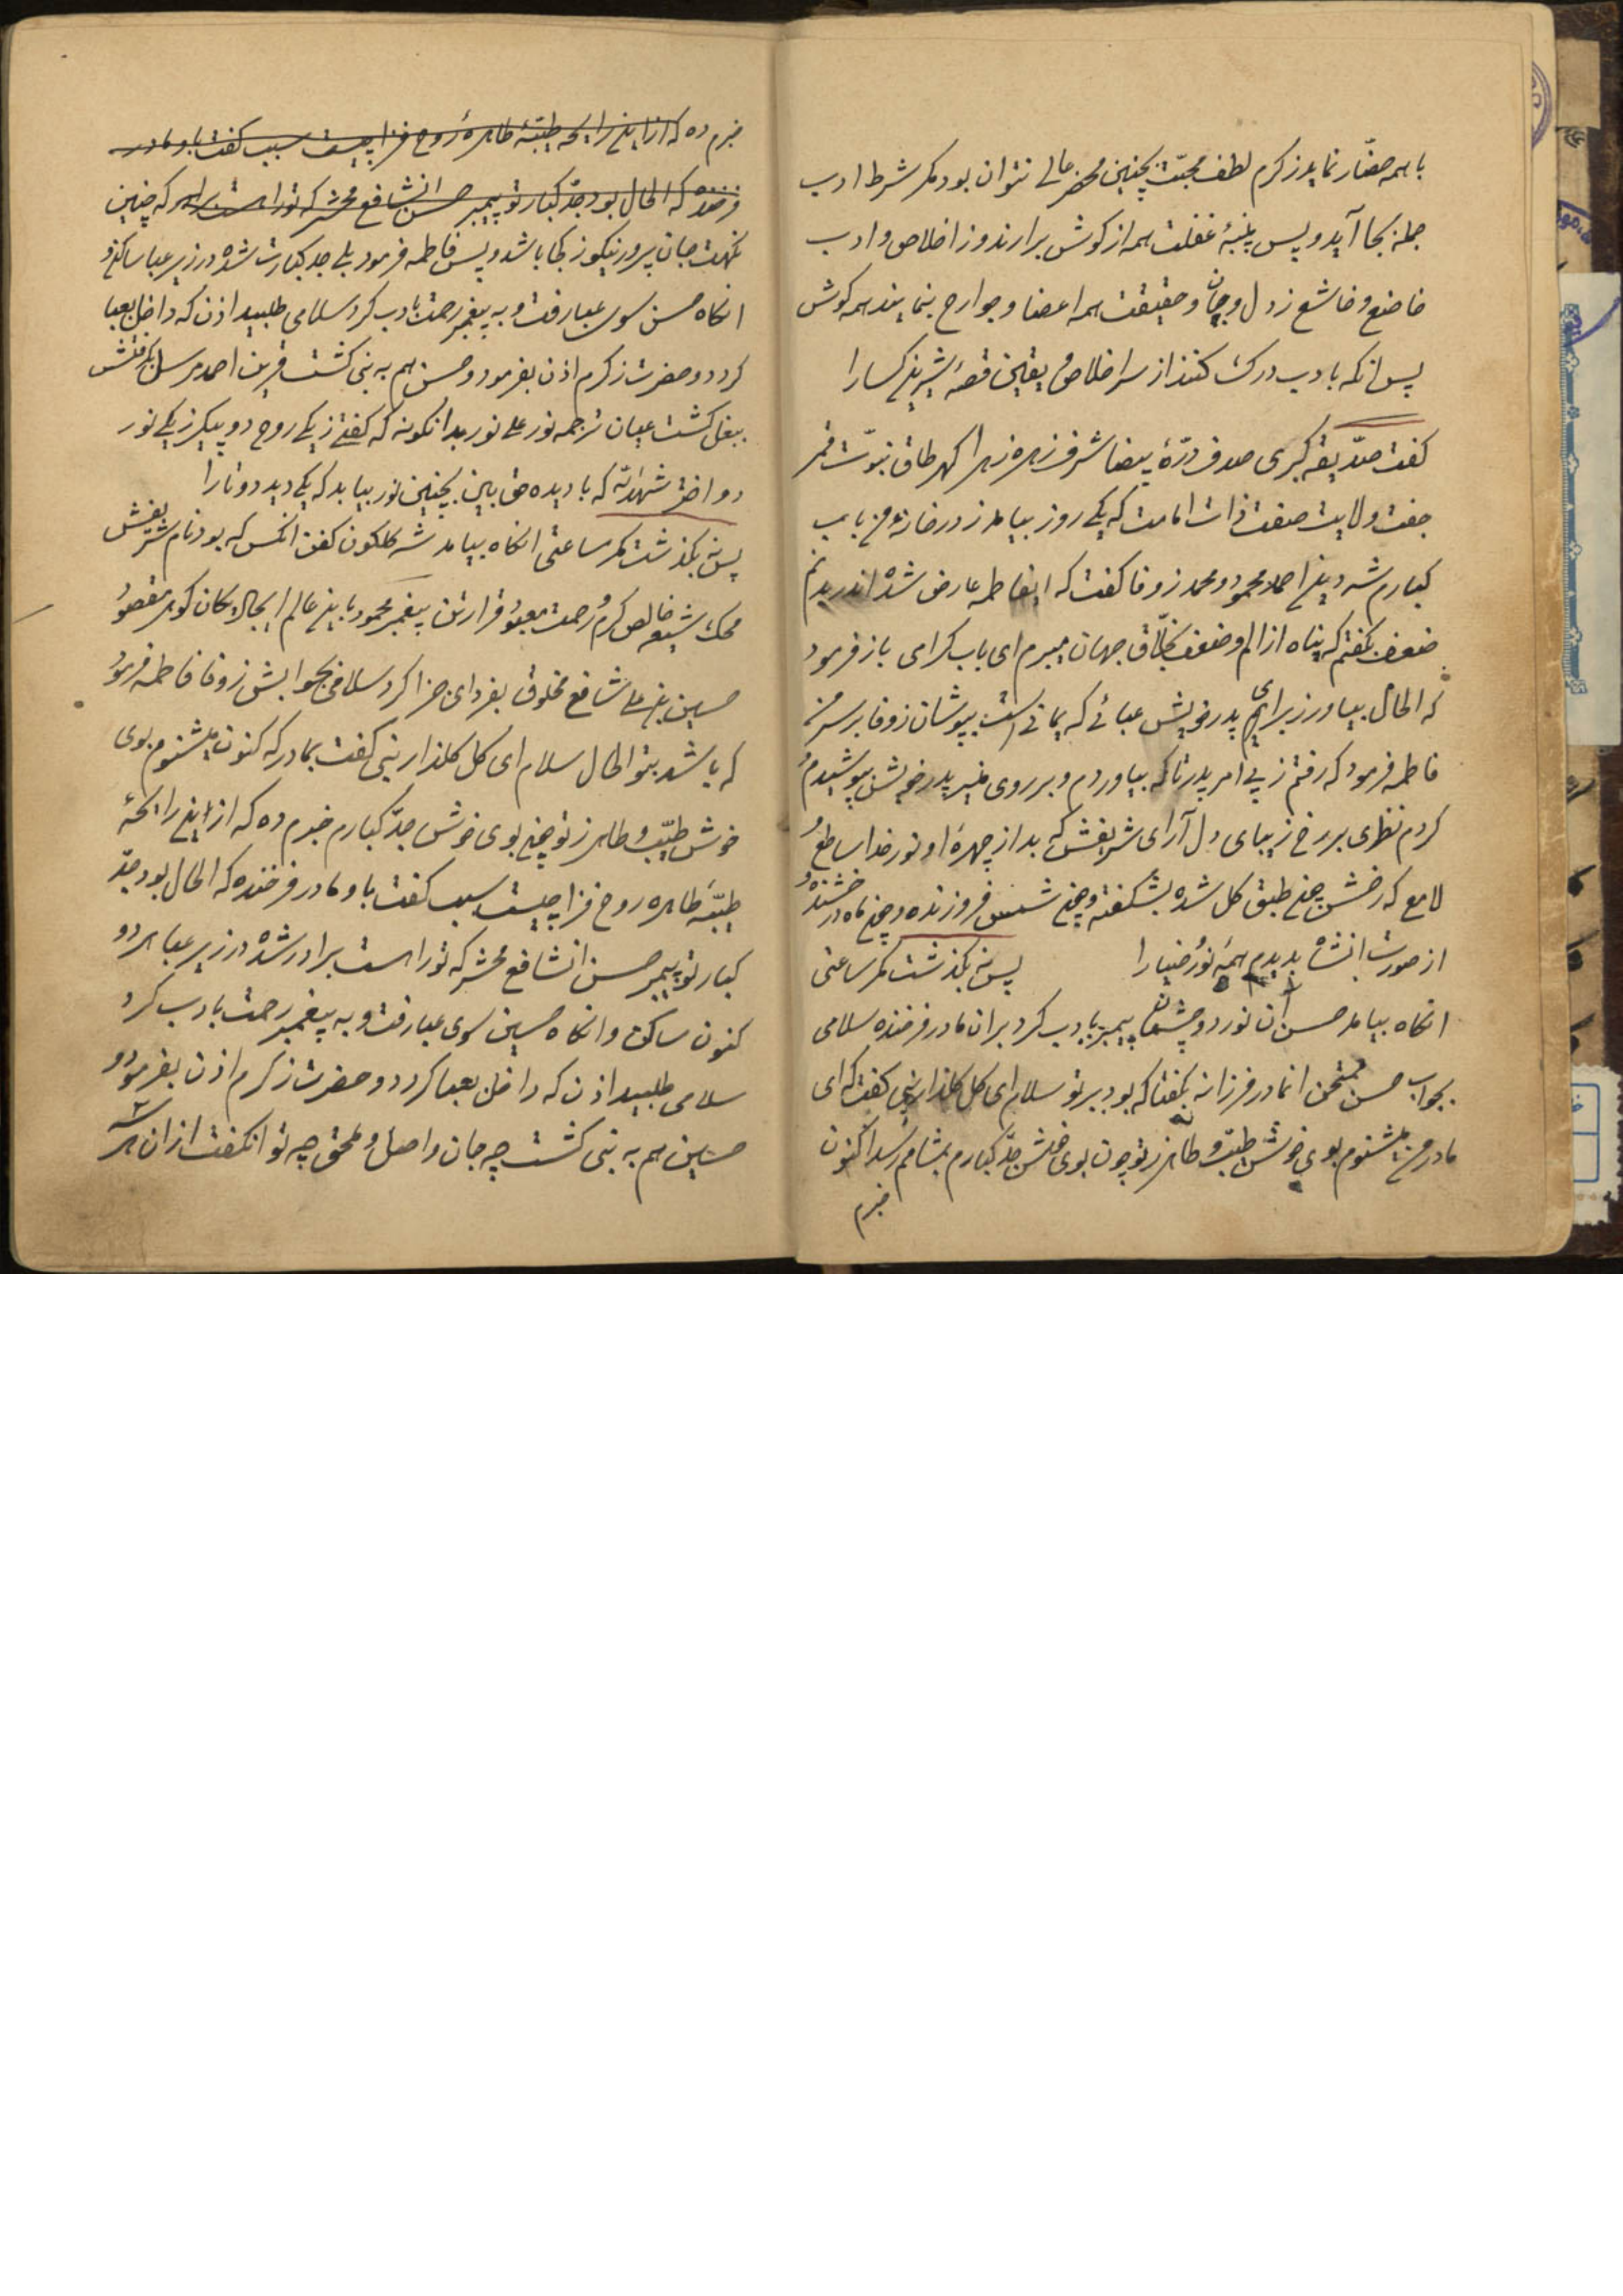 با همه حضّار نماید ز کرم لطف محبّت بچنین محضر عالی نتوان بود مگر شرط ادب
جمله بجا آید و پس پنبهٔ غفلت همه از گوش برارند و ز اخلاص و ادب
خاضع و خاشع ز دل و جان و حقیقت همه اعضا و جوارح بنمایند همه گوش
پس انکه بادب درک کنند از سر اخلاص و یقین قصهٔ شیرین کسا را
گفت صدّیقه کبری صدف درّهٔ بیضا شرف زهره زهرا گهر طاق نبوّت قمر
جفت ولایت صفت ذات امامت که یکی روز بیامد ز در خانهٔ من باب
کبارم شه دین احمد محمود و محمد ز وفا گفت که ایفاطمه عارض شده اندر بدنم
ضعف بگفتم که پناه از الم و ضعف بخلّاق جهان میبرم ای باب کرامی باز فرمود
که الحال بیاور ز برای پدر خویش عبائی که یمانی است بپوشان ز وفا بر سر من
فاطمه فرمود که رفتم ز پی امر پدر تا که بیاوردم و بر روی منیر پدر خویش بپوشیدم و
کردم نظری بر رخ زیبای دل آرای شریفش که بد از چهرهٔ او نور خدا ساطع و
لامع که رخش چون طبق گل شده بشکفته و چون شمس فروزنده و چون ماه درخشنده و
از صورت انشاه بدیدم همه نور ضیا را پس نه بگذشت مگر ساعتی
انگاه بیامد حسن آن نور دو چشمان پیمبر بادب کرد بران مادر فرخنده سلامی
بجواب حسن ممتحن انمادر فرزانه بگفتا که بود بر تو سلام ای گل گلذار نبی گفت که ای
مادر من میشنوم بوی خوش طیّب و طاهر ز تو چون بوی خوش جدّ کبارم بمشامم رسد اکنون
خبرم
خبرم ده که از این رایحه طیّبهٔ طاهرهٔ روح فزا چیست سبب گفت باو مادر
فرخنده که الحال بود جدّ کبار تو پیمبر حسن انشافع محشر که تو را است برابر که چنین
نکهت جان پرور نیکو ز کجا باشد و پس فاطمه فرمود بلی جد کبارت شده در زیر عبا ساکن و
انگاه حسن سوی عبا رفت و به پیغمبر رحمت بادب کرد سلامی طلبید اذن که داخل بعبا
کردد و حضرت ز کرم اذن بفرمود و حسن هم به نبی گشت قرین احمد مرسل بگرفتش
ببغل گشت عیان ترجمه نور علی نور بدانگونه که گفتی ز یکی روح دو پیکر ز یکی نور
دو اختر شهدالله که با دیده حق بین بچنین نور بیاید که یکی دید دو تا را
پس نه بگذشت مگر ساعتی انگاه بیامد شه گلگون کفن انکس که بود نام شریفش
محک شیعه خالص کرم و رحمت معبود قرار تن پیغمبر محمود باین عالم ایجاد کان گوهر مقصود
حسین بن علی شافع مخلوق بفردای جزا کرد سلامی بجوابش ز وفا فاطمه فرمود
که باشد بتو الحال سلام ای گل گلذار نبی گفت بمادر که کنون میشنوم بوی
خوش طیّب و طاهر ز تو چون بوی خوش جدّ کبارم خبرم ده که از این رایحهٔ
طیّبه طاهره روح فزا چیست سبب گفت باو مادر فرخنده که الحال بود جدّ
کبار تو پیمبر حسن انشافع محشر که تو را است برادر شده در زیر عبا هر دو
کنون ساکن و انگاه حسین سوی عبا رفت و به پیغمبر رحمت بادب کرد
سلامی طلبید اذن که داخل بعبا کردد و حضرت ز کرم اذن بفرمود و
حسین هم به نبی گشت چه جان واصل و ملحق چه توانگفت از ان هر سه